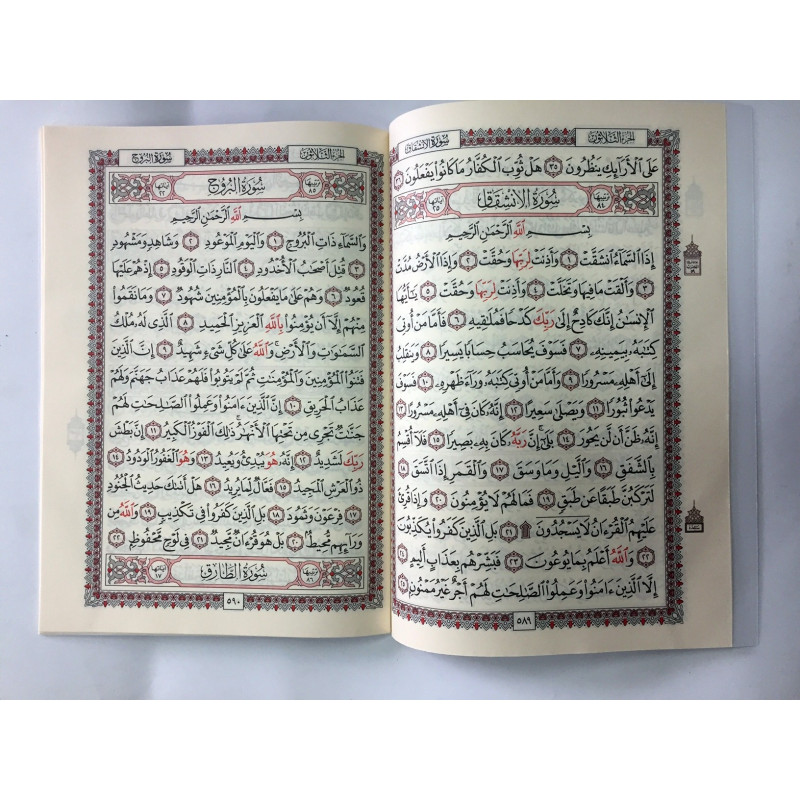 سُورَةُ الانشِقَاق
الجُزءُ الثَّلَاثُونَ
عَلَى ٱلْأَرَآئِكِ يَنظُرُونَ ٣٥ هَلْ ثُوِّبَ ٱلْكُفَّارُ مَا كَانُوا۟ يَفْعَلُونَ ٣٦
رتيبها ٨٤ سُورَةُ الانشِقَاقِ آياتها ٢٥
بِسْمِ ٱللَّهِ ٱلرَّحْمَٰنِ ٱلرَّحِيمِ
إِذَا ٱلسَّمَآءُ ٱنشَقَّتْ ١ وَأَذِنَتْ لِرَبِّهَا وَحُقَّتْ ٢ وَإِذَا ٱلْأَرْضُ مُدَّتْ
٣ وَأَلْقَتْ مَا فِيهَا وَتَخَلَّتْ ٤ وَأَذِنَتْ لِرَبِّهَا وَحُقَّتْ ٥ يَٰٓأَيُّهَا
ٱلْإِنسَٰنُ إِنَّكَ كَادِحٌ إِلَىٰ رَبِّكَ كَدْحًا فَمُلَٰقِيهِ ٦ فَأَمَّا مَنْ أُوتِىَ
كِتَٰبَهُۥ بِيَمِينِهِۦ ٧ فَسَوْفَ يُحَاسَبُ حِسَابًا يَسِيرًا ٨ وَيَنقَلِبُ
إِلَىٰٓ أَهْلِهِۦ مَسْرُورًا ٩ وَأَمَّا مَنْ أُوتِىَ كِتَٰبَهُۥ وَرَآءَ ظَهْرِهِۦ ١٠ فَسَوْفَ
يَدْعُوا۟ ثُبُورًا ١١ وَيَصْلَىٰ سَعِيرًا ١٢ إِنَّهُۥ كَانَ فِىٓ أَهْلِهِۦ مَسْرُورًا ١٣
إِنَّهُۥ ظَنَّ أَن لَّن يَحُورَ ١٤ بَلَىٰٓ إِنَّ رَبَّهُۥ كَانَ بِهِۦ بَصِيرًا ١٥ فَلَآ أُقْسِمُ
بِٱلشَّفَقِ ١٦ وَٱلَّيْلِ وَمَا وَسَقَ ١٧ وَٱلْقَمَرِ إِذَا ٱتَّسَقَ ١٨
لَتَرْكَبُنَّ طَبَقًا عَن طَبَقٍ ١٩ فَمَا لَهُمْ لَا يُؤْمِنُونَ ٢٠ وَإِذَا قُرِئَ
عَلَيْهِمُ ٱلْقُرْءَانُ لَا يَسْجُدُونَ ۩ ٢١ بَلِ ٱلَّذِينَ كَفَرُوا۟ يُكَذِّبُونَ
٢٢ وَٱللَّهُ أَعْلَمُ بِمَا يُوعُونَ ٢٣ فَبَشِّرْهُم بِعَذَابٍ أَلِيمٍ ٢٤
إِلَّا ٱلَّذِينَ ءَامَنُوا۟ وَعَمِلُوا۟ ٱلصَّٰلِحَٰتِ لَهُمْ أَجْرٌ غَيْرُ مَمْنُونٍۭ ٢٥
٥٨٩
سُورَةُ البُرُوج
الجُزءُ الثَّلَاثُونَ
رتيبها ٨٥ سُورَةُ البُرُوجِ آياتها ٢٢
بِسْمِ ٱللَّهِ ٱلرَّحْمَٰنِ ٱلرَّحِيمِ
وَٱلسَّمَآءِ ذَاتِ ٱلْبُرُوجِ ١ وَٱلْيَوْمِ ٱلْمَوْعُودِ ٢ وَشَاهِدٍ وَمَشْهُودٍ
٣ قُتِلَ أَصْحَٰبُ ٱلْأُخْدُودِ ٤ ٱلنَّارِ ذَاتِ ٱلْوَقُودِ ٥ إِذْ هُمْ عَلَيْهَا
قُعُودٌ ٦ وَهُمْ عَلَىٰ مَا يَفْعَلُونَ بِٱلْمُؤْمِنِينَ شُهُودٌ ٧ وَمَا نَقَمُوا۟
مِنْهُمْ إِلَّآ أَن يُؤْمِنُوا۟ بِٱللَّهِ ٱلْعَزِيزِ ٱلْحَمِيدِ ٨ ٱلَّذِى لَهُۥ مُلْكُ
ٱلسَّمَٰوَٰتِ وَٱلْأَرْضِ ۚ وَٱللَّهُ عَلَىٰ كُلِّ شَىْءٍ شَهِيدٌ ٩ إِنَّ ٱلَّذِينَ
فَتَنُوا۟ ٱلْمُؤْمِنِينَ وَٱلْمُؤْمِنَٰتِ ثُمَّ لَمْ يَتُوبُوا۟ فَلَهُمْ عَذَابُ جَهَنَّمَ وَلَهُمْ
عَذَابُ ٱلْحَرِيقِ ١٠ إِنَّ ٱلَّذِينَ ءَامَنُوا۟ وَعَمِلُوا۟ ٱلصَّٰلِحَٰتِ لَهُمْ
جَنَّٰتٌ تَجْرِى مِن تَحْتِهَا ٱلْأَنْهَٰرُ ۚ ذَٰلِكَ ٱلْفَوْزُ ٱلْكَبِيرُ ١١ إِنَّ بَطْشَ
رَبِّكَ لَشَدِيدٌ ١٢ إِنَّهُۥ هُوَ يُبْدِئُ وَيُعِيدُ ١٣ وَهُوَ ٱلْغَفُورُ ٱلْوَدُودُ ١٤
ذُو ٱلْعَرْشِ ٱلْمَجِيدُ ١٥ فَعَّالٌ لِّمَا يُرِيدُ ١٦ هَلْ أَتَىٰكَ حَدِيثُ ٱلْجُنُودِ
١٧ فِرْعَوْنَ وَثَمُودَ ١٨ بَلِ ٱلَّذِينَ كَفَرُوا۟ فِى تَكْذِيبٍ ١٩ وَٱللَّهُ مِن
وَرَآئِهِم مُّحِيطٌۢ ٢٠ بَلْ هُوَ قُرْءَانٌ مَّجِيدٌ ٢١ فِى لَوْحٍ مَّحْفُوظٍۭ ٢٢
رتيبها ٨٦ سُورَةُ الطَّارِقِ آياتها ١٧
٥٩٠